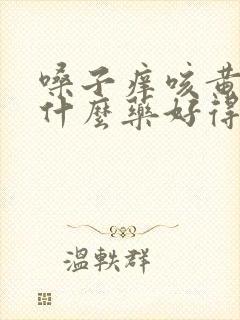 嗓子痒咳黄
什麼藥好得
溫軼群